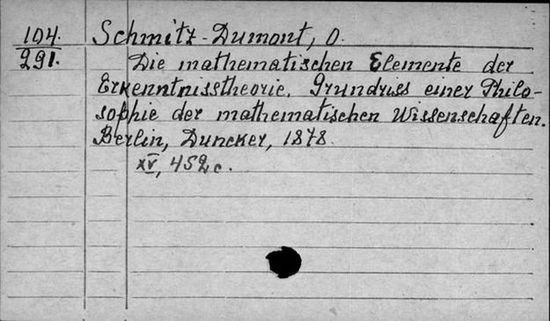 104.
291.
Schmitz-Dumont, O.
Die mathematischen Elemente der
Erkenntnisstheorie. Grundriss einer Philo-
sophie der mathematischen Wissenschaften.
Berlin, Duncker, 1878.
XV, 452 c.